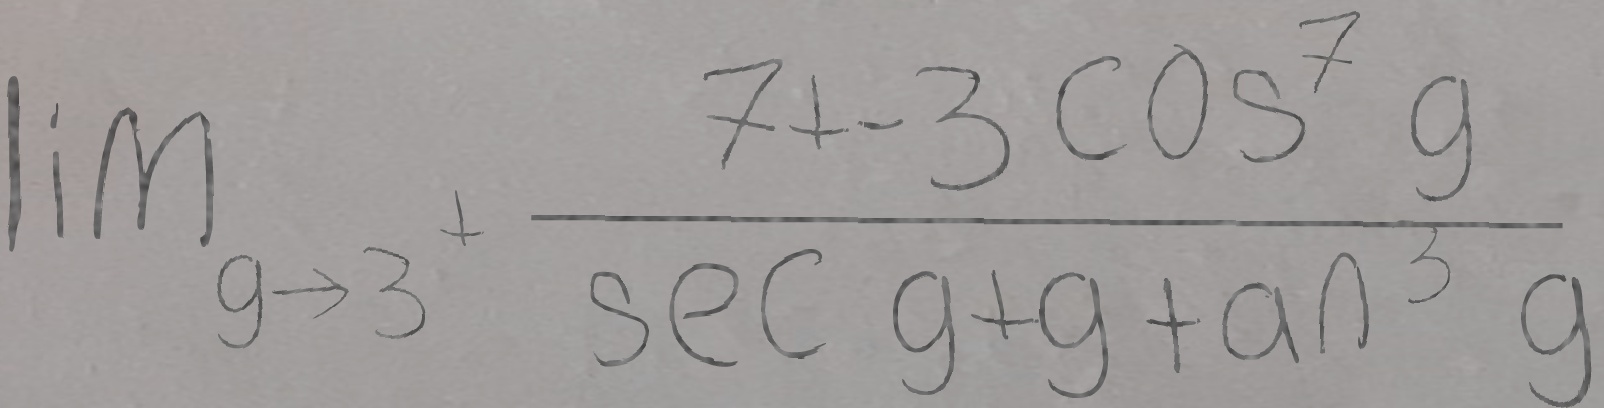 \lim_{g \to 3^+} \frac{7 + -3 \cos^7 g}{\sec g + g \tan^3 g}